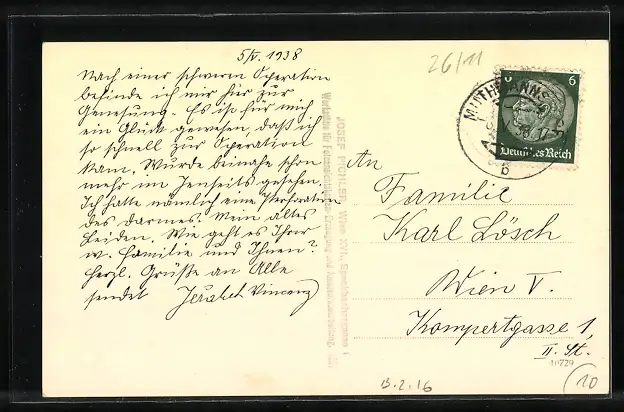 5/V. 1938
26/11
Nach einer schweren Operation
befinde ich mir hier zur
Genesung. Es ist für mich
ein Glück gewesen, daß ich
so schnell zur Operation
kam. Wurde beinahe schon
mehr im Jenseits gesehen.
Ich hatte nämlich eine Perforation
des Darmes. Mein altes
Leiden. Wie geht es Ihrer
w. Familie und Ihnen?
Herzl. Grüße an Alle
sendet Vinzenz
6
Deutsches Reich
b
JOSEF PICHLER, Wien XVI.
An
Familie
Karl Lösch
Wien V.
Kompertgasse 1,
II. St.
10729
B.2.16
10